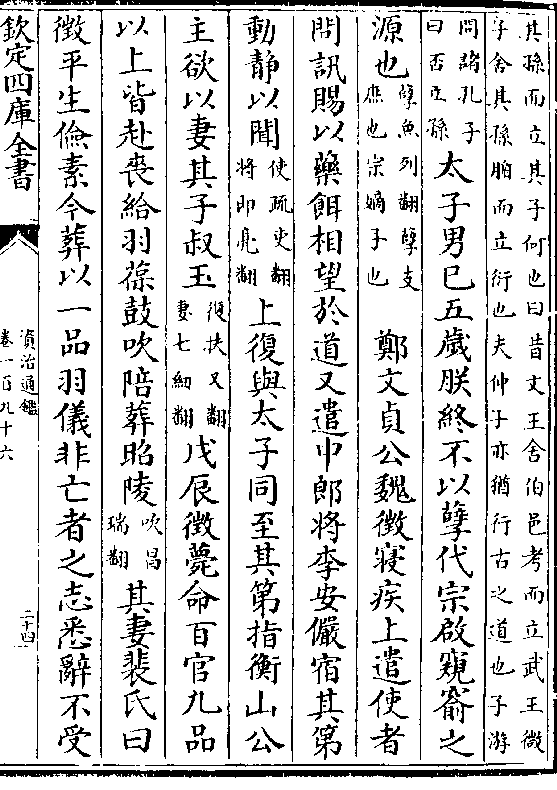 其孫而立其子何也曰昔文王舍伯邑考而立武王微
子舍其孫腯而立衍也夫仲子亦猶行古之道也子游
問諸孔子
曰否立孫
太子男已五歲朕終不以孽代宗啟窺窬之
源也
孽魚列翻孽支
庶也宗嫡子也
鄭文貞公魏徵寢疾上遣使者
問訊賜以藥餌相望於道又遣中郎將李安儼宿其第
動静以聞
使疏吏翻
將即亮翻
上復與太子同至其第指衡山公
主欲以妻其子叔玉
復扶又翻
妻七細翻
戊辰徵薨命百官九品
以上皆赴喪給羽葆鼓吹陪葬昭陵
吹昌
瑞翻
其妻裴氏曰
徵平生儉素今葬以一品羽儀非亡者之志悉辭不受
欽定四庫全書
資治通鑑
卷一百九十六
二十四